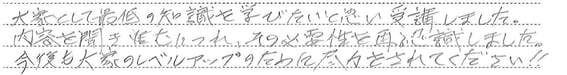 大家として最低の知識を学びたいと思い受講しました。
内容を聞き進むにつれ、その必要性を再認識しました。
今後も大家のレベルアップのために をされてください!!